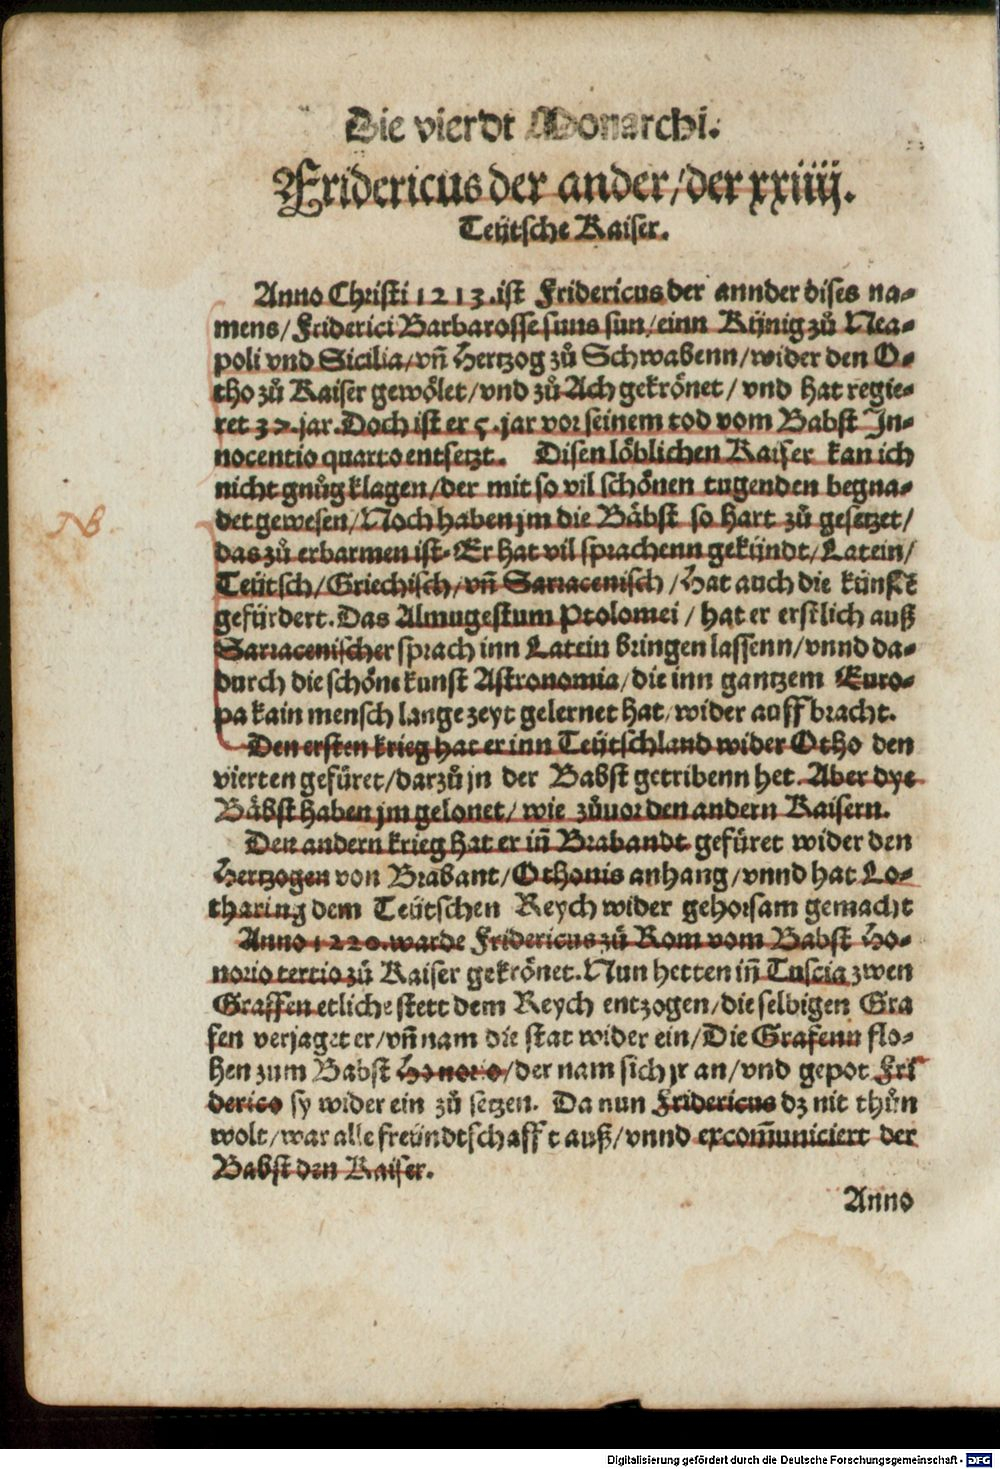 Die vierdt Monarchi.
Fridericus der ander/der xxiiij.
Teütsche Kaiser.
Anno Christi 1213.ist Fridericus der annder dises na-
mens/Friderici Barbarosse suns sun/einn Künig zů Nea-
poli vnd Sicilia/vñ Hertzog zů Schwabenn/wider den O-
tho zů Kaiser gewölet/vnd zů Ach gekrönet/ vnd hat regie-
ret 37.jar.Doch ist er 5.jar vor seinem tod vom Babst In-
nocentio quarto entsetzt. Disen löblichen Kaiser kan ich
nicht gnůg klagen/der mit so vil schönen tugenden begna-
det gewesen/Noch haben jm die Bäbst so hart zů gesetzet/
das zů erbarmen ist. Er hat vil sprachenn gekündt/Latein/
Teütsch/Griechisch/vñ Sarracenisch/Hat auch die künst
gefürdert.Das Almugestum Ptolomei/ hat er erstlich auß
Sarracenischer sprach inn Latein bringen lassenn/vnnd da-
durch die schöne kunst Astronomia/die inn gantzem Euro-
pa kain mensch lange zeyt gelernet hat/wider auff bracht.
Den ersten krieg hat er inn Teütschland wider Otho den
vierten gefüret/darzů jn der Babst getribenn het.Aber dye
Bäbst haben jm gelonet/ wie zůuor den andern Kaisern.
NB
Den andern krieg hat er iñ Brabandt gefüret wider den
Hertzogen von Brabant/Othonis anhang/vnnd hat Lo-
tharing dem Teütschen Reych wider gehorsam gemacht
Anno 1220.warde Fridericus zů Rom vom Babst Ho-
norio tertio zů Kaiser gekrönet.Nun hetten iñ Tuscia zwen
Graffen etliche stett dem Reych entzogen/die selbigen Gra
fen verjaget er/vñ nam die stat wider ein/Die Grafenn flo-
hen zum Babst Honorio/der nam sich jr an/vnd gepot Fri
derico sy wider ein zů setzen. Da nun Fridericus dz nit thůn
wolt/war alle freündtschafft auß/vnnd excom̃uniciert der
Babst den Kaiser.
Anno
Digitalisierung gefördert durch die Deutsche Forschungsgemeinschaft - DFG